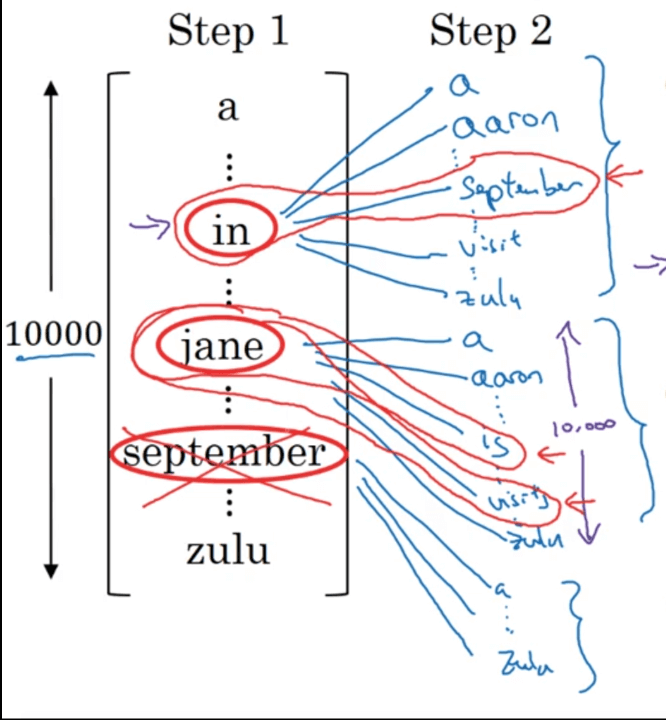 Step 1
Step 2
a
⋮
in
⋮
jane
⋮
september
⋮
zulu
10000
a
aaron
⋮
September
⋮
visit
⋮
zulu
a
aaron
⋮
is
⋮
visits
⋮
zulu
10,000
a
⋮
zulu